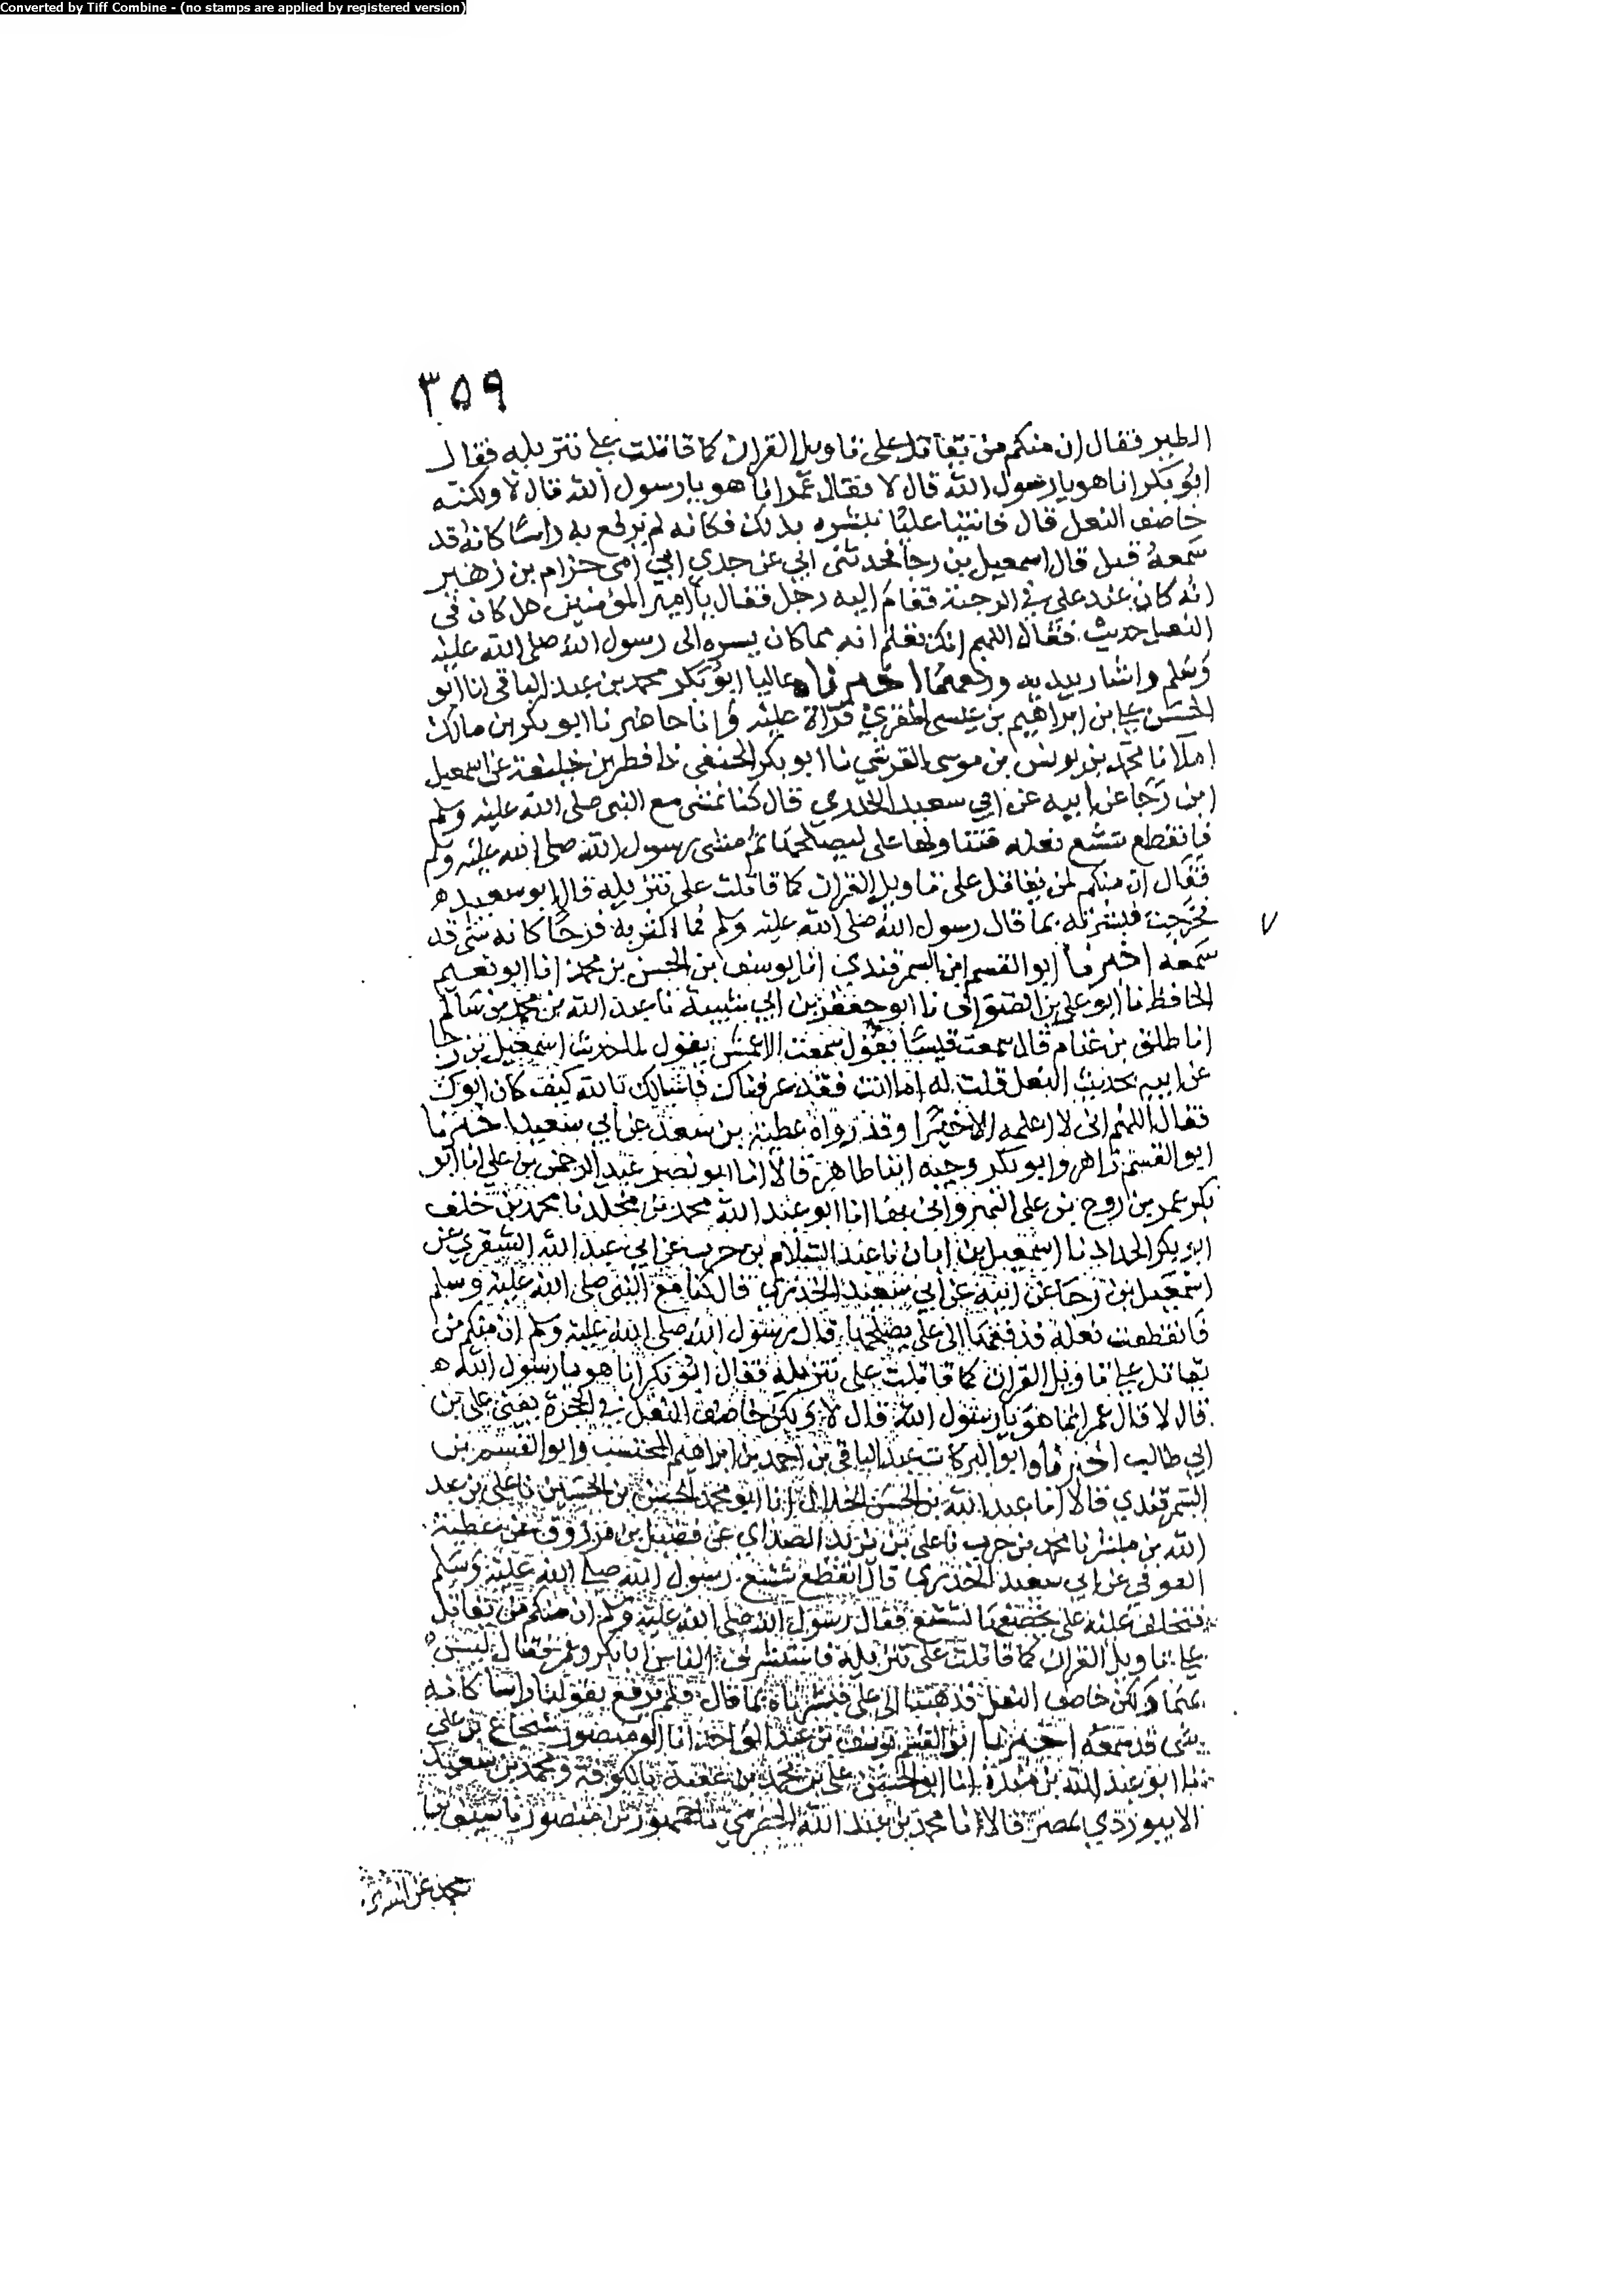 Converted by Tiff Combine - (no stamps are applied by registered version)
٣٥٩
الطير فقال ان منكم من يقاتل على تاويل القران كما قاتلت على تنزيله فقال
ابو بكر انا هو يا رسول الله قال لا فقال عمر انا هو يا رسول الله قال لا ولكنه
خاصف النعل قال فاتينا عليا نبشره بذلك فكانه لم يرفع به راسا كانه قد
سمعه قبل قال اسمعيل بن رجا فحدثنى ابي عن جدي ابي امى حزام بن زهير
انه كان عند علي في الرحبة فقام اليه رجل فقال يا امير المؤمنين هل كان في
النعل حديث فقال اللهم انك تعلم انه مما كان يسره الى رسول الله صلى الله عليه
وسلم واشار بيديه ورفعهما اخبرناه عاليا ابو بكر محمد بن عبد الباقى انا ابو
الحسن علي بن ابراهيم بن عيسى المقري قراة عليه وانا حاضر نا ابو بكر بن مالك
املا نا محمد بن يونس بن موسى القرشي نا ابو بكر الحنفي نا فطر بن خليفة عن اسمعيل
ابن رجا عن ابيه عن ابي سعيد الخدري قال كنا نمشى مع النبى صلى الله عليه وسلم
فانقطع شسع نعله فتناولها على ليصلحها ثم مشى رسول الله صلى الله عليه وسلم
فقال ان منكم لمن يقاتل على تاويل القران كما قاتلت على تنزيله قال ابو سعيد ه
فخرجت فبشرته بما قال رسول الله صلى الله عليه وسلم فما اكثر به فرحا كانه شى قد
سمعه اخبرنا ابو القسم ابن السمرقندي انا يوسف بن الحسن بن محمد انا ابو نعيم
الحافظ نا ابو على بن الصواف نا ابو جعفر بن ابي شيبة نا عبد الله بن محمد بن سالم
انا طلق بن غنام قال سمعت قيسا يقول سمعت الاعمش يقول لما حدث اسمعيل بن رجا
عن ابيه بحديث النعل قلت له اما انت فقد عرفناك فاسالك بالله كيف كان ابوك
فقال اللهم انى لا اعلمه الا خيرا وقد رواه عطية بن سعد عن ابي سعيد اخبرنا
ابو القسم زاهر وابو بكر وجيه ابنا طاهر قالا انا ابو نصر عبد الرحمن بن علي انا ابو
بكر عمر بن روح بن على النهروانى بها انا ابو عبد الله محمد بن مخلد نا محمد بن خلف
ابو بكر الحداد نا اسمعيل بن ابان نا عبد السلام بن حرب عن ابي عبد الله الشقري عن
اسمعيل بن رجا عن ابيه عن ابي سعيد الخدري قال كنا مع النبى صلى الله عليه وسلم
فانقطعت نعله فدفعها الى على يصلحها قال رسول الله صلى الله عليه وسلم ان منكم من
يقاتل على تاويل القران كما قاتلت على تنزيله فقال ابو بكر انا هو يا رسول الله ه
قال لا قال عمر انا هو يا رسول الله قال لا ولكن خاصف النعل في الحجرة يعنى على بن
ابي طالب اخبرنا ابو البركات عبد الباقى بن احمد بن ابراهيم المحتسب وابو القسم بن
السمرقندي قالا انا عبد الله بن الحسن الخلال انا ابو محمد الحسن بن الحسين نا على بن عبد
الله بن مبشر نا محمد بن حرب نا على بن يزيد الصداى عن فضيل بن مرزوق عن عطية
العوفي عن ابي سعيد الخدري قال انقطع شسع رسول الله صلى الله عليه وسلم
فتخلف عليه على يخصف الشسع فقال رسول الله صلى الله عليه وسلم ان منكم من يقاتل
على تاويل القران كما قاتلت على تنزيله فاستشرف الناس ابا بكر وعمر فقال ليس
بهما ولكن خاصف النعل فذهبنا الى على فبشرناه بما قال فلم يرفع بقولنا راسا كانه
شى قد سمعه اخبرنا ابو القسم يوسف بن عبد الواحد انا ابو منصور شجاع بن علي
انا ابو عبد الله بن مندة انا ابو الحسن على بن محمد بن عقبة بالكوفة ومحمد بن سعيد
الابيوردي بمصر قالا انا محمد بن عبد الله الحضرمي نا جمهور بن منصور نا سيف بن
محمد عن السري